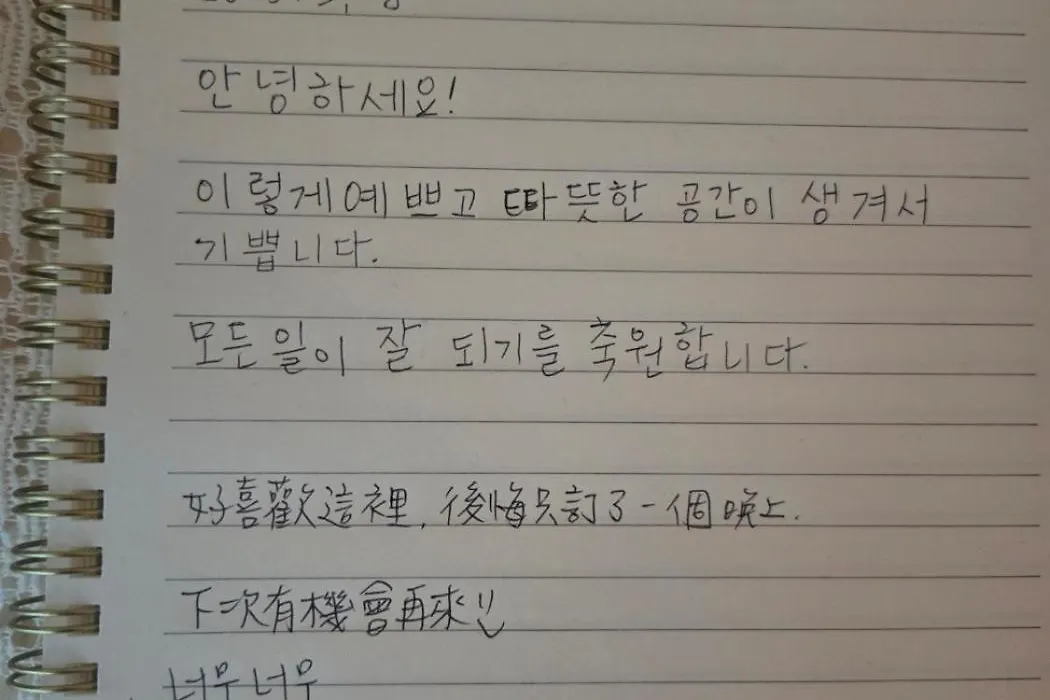 안녕하세요!
이렇게 예쁘고 따뜻한 공간이 생겨서
기쁩니다.
모든 일이 잘 되기를 축원합니다.
好喜歡這裡, 後悔只訂了一個晚上.
下次有機會再來
너무너무